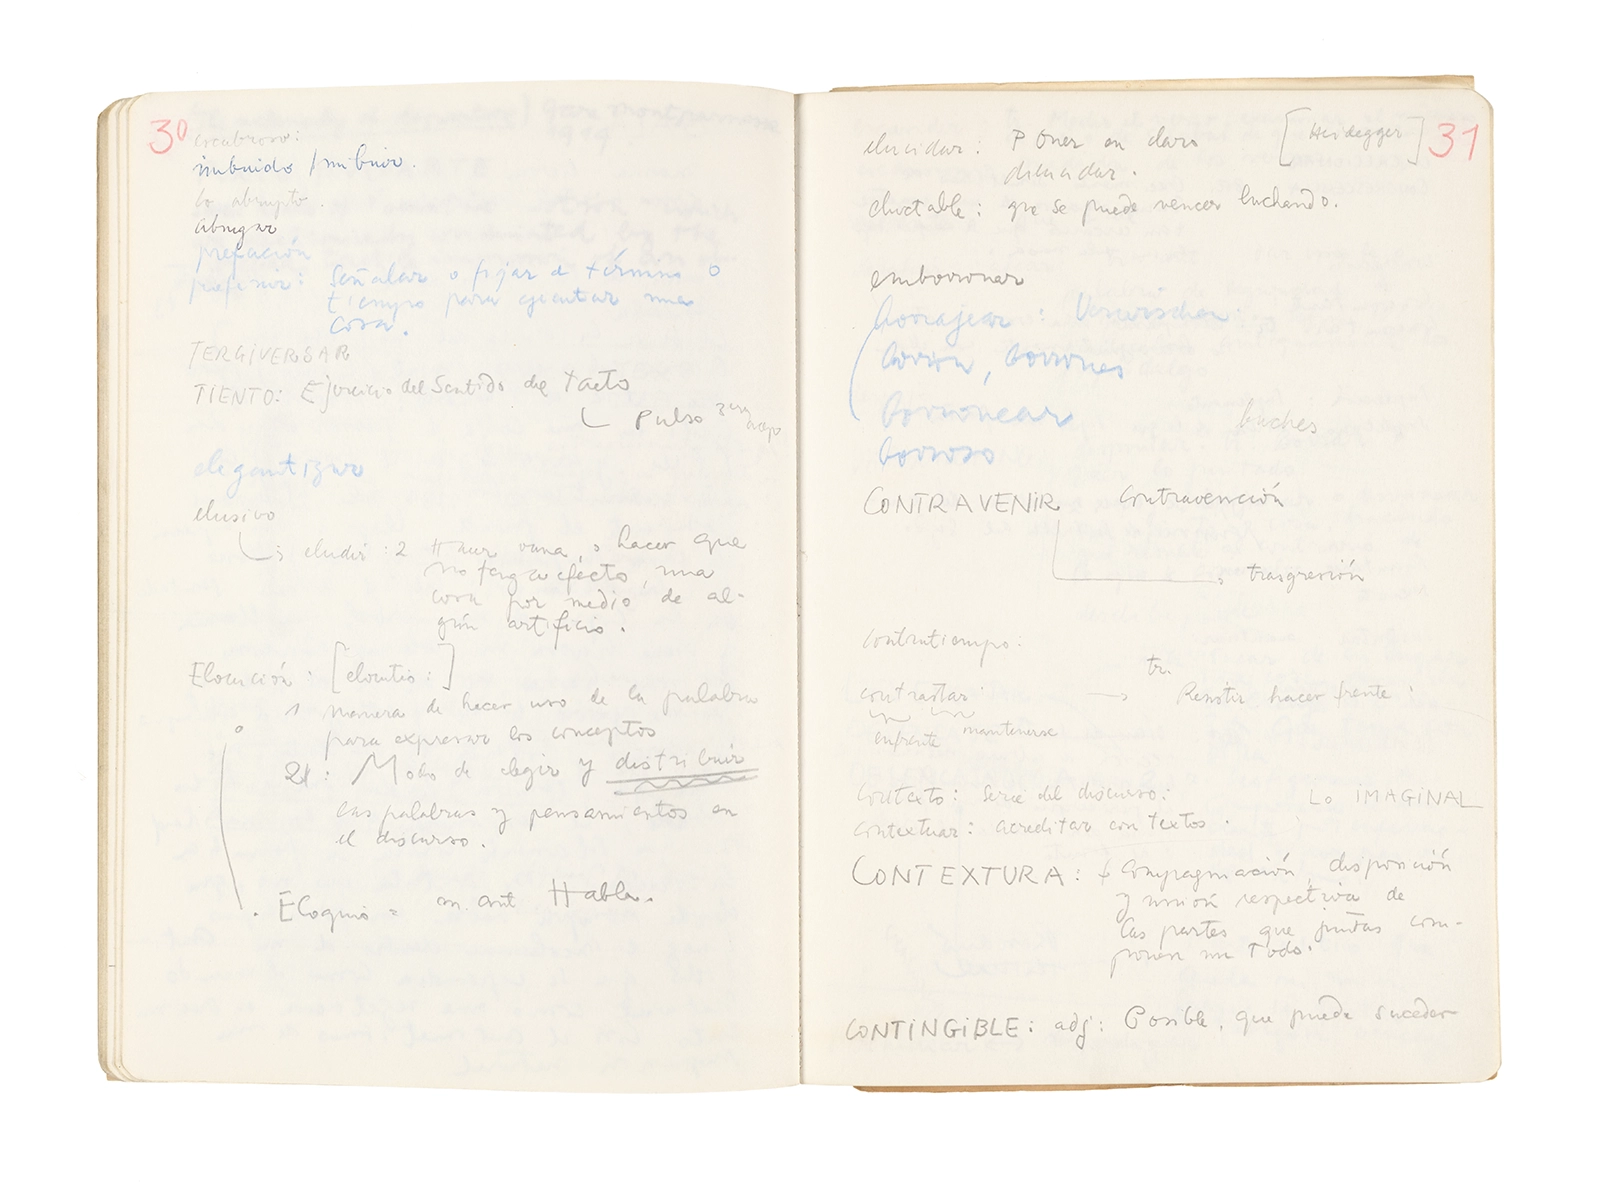 30
escabroso:
imbuido / imbuir.
lo abrupto.
abnegar
prefación
prefinir: Señalar o fijar el término o
tiempo para ejecutar una
cosa.
TERGIVERSAR
TIENTO: Ejercicio del Sentido del tacto
Pulso 3era acep
elegantizar
elusivo
eludir: 2 Hacer vana, o hacer que
no tenga efecto, una
cosa por medio de al-
gún artificio.
Elocución: [elocutio:]
1 manera de hacer uso de la palabra
para expresar los conceptos
2: Modo de elegir y distribuir
las palabras y pensamientos en
el discurso.
Eloquio = m. ant. Habla.
31
elucidar: Poner en claro [Heidegger]
dilucidar.
eluctable: que se puede vencer luchando.
emborronar
borrajear: Verwischen
borrón, borrones
borronear
buches
borroso
CONTRAVENIR contravención
trasgresión
contratiempo:
tr.
contrastar: → Resistir hacer frente:
enfrente mantenerse
contexto: Serie del discurso:
Lo IMAGINAL
contextuar: acreditar con textos.
CONTEXTURA: f compaginación, disposición
y unión respectiva de
las partes que juntas com-
ponen un todo.
CONTINGIBLE: adj: Posible, que puede suceder